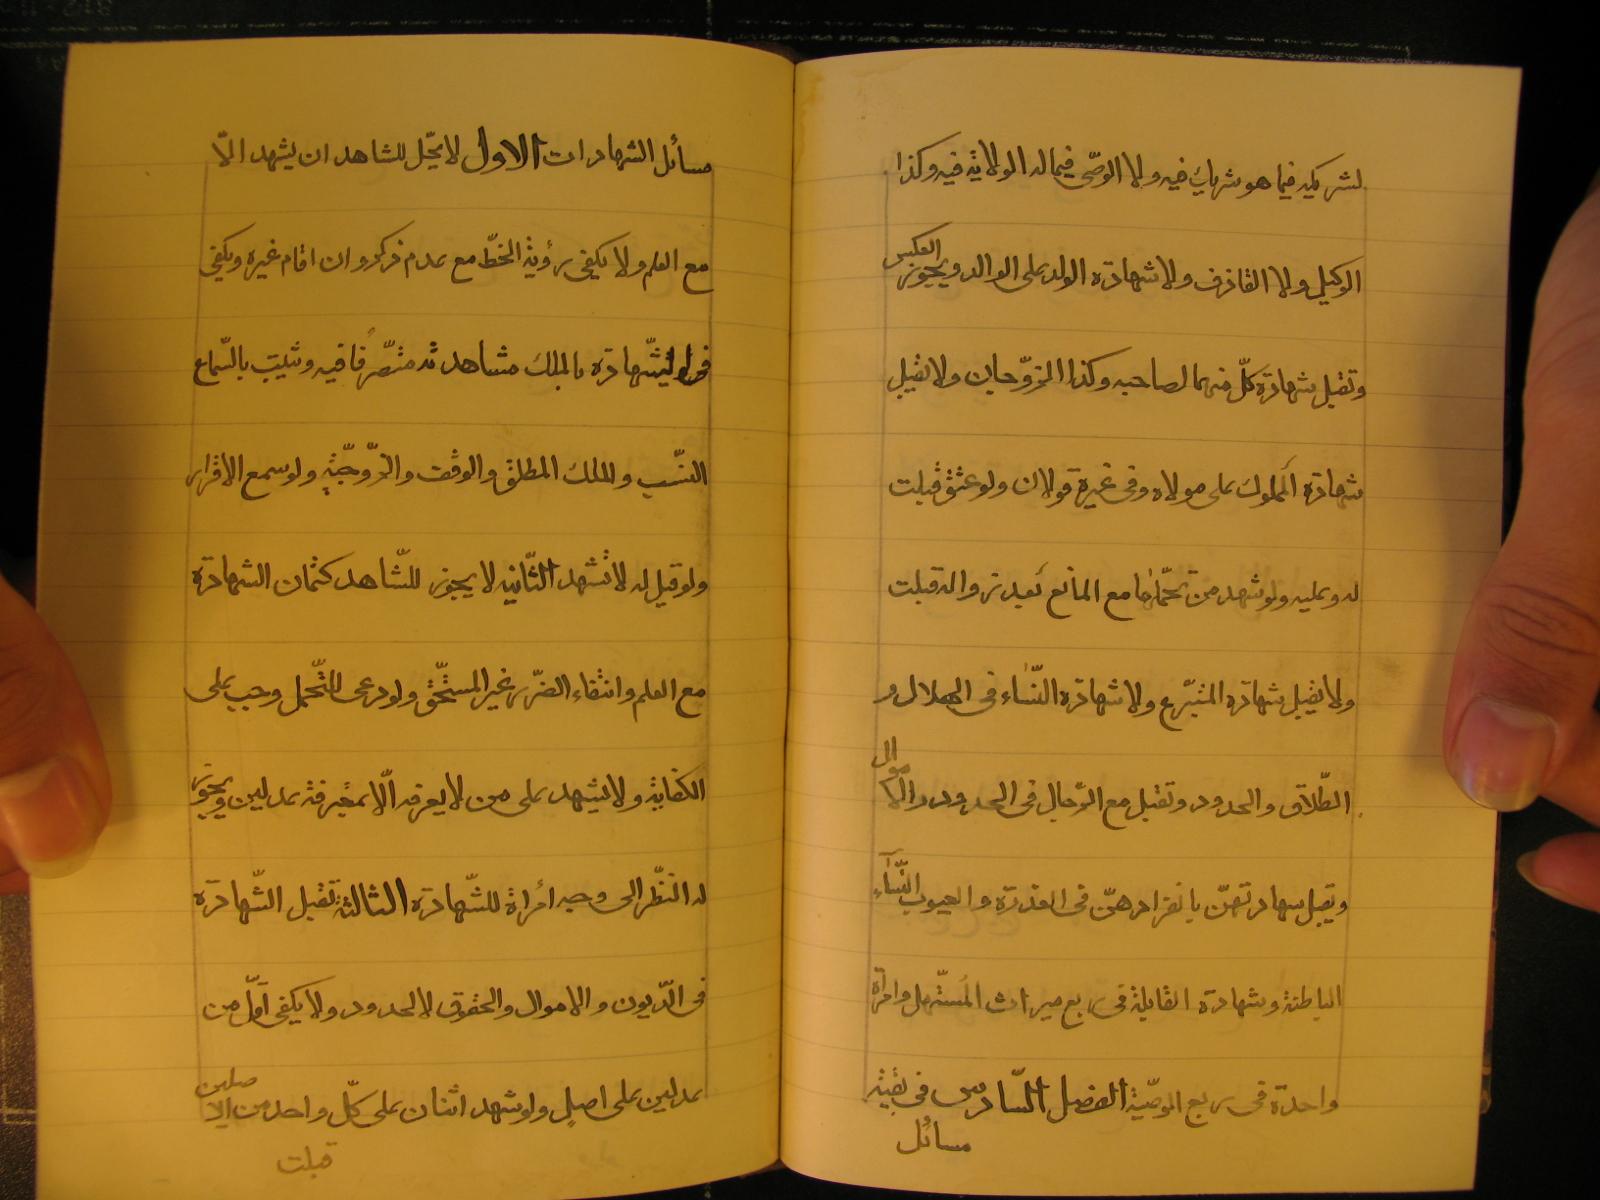 لشريكه فيما هو شريك فيه ولا الوصّى فيما له الولاية فيه وكذا
الوكيل ولا القاذف ولا شهادة الولد على الوالد ويجوز العكس
وتقبل شهادة كلّ منهما لصاحبه وكذا الزوّجان ولا تقبل
شهادة المملوك على مولاه وفى غيره قولان ولو عتق قبلت
له وعليه ولو شهد من تحمّلها مع المانع بعد زواله قبلت
ولا تقبل شهادة المتبرّع ولا شهادة النّساء فى الهلال و
الطّلاق والحدود وتقبل مع الرّجال فى الحدود والاموال
وتقبل شهادتهنّ بانفرادهنّ فى العذرة والعيوب النّساء
الباطنة وشهادة القابلة فى ربع ميراث المستهل وامرأة
واحدة فى ربع الوصيّة الفصل السّادس فى بقية
مسائل
مسائل الشهادات الاول لا يحّل للشاهد ان يشهد الاّ
مع العلم ولا يكفى رؤية الخطّ مع عدم ذكر وان اقام غيره ويكفى
فى الشّهادة بالملك مشاهدته متصّرفا فيه وتثبت بالسّماع
النسّب والملك المطلق والوقف والزّوجّية ولو سمع الاقرار
ولو قيل له لا تشهد الثّانية لا يجوز للشّاهد كتمان الشهادة
مع العلم وانتفاء الضّرر غير المستحّق ولو دعى للتّحمل وجب على
الكفاية ولا يشهد على من لا يعرفه الّا بمعرفة عدلين ويجوز
له النّظر الى وجه امرأة للشّهادة الثالثة تقبل الشّهادة
فى الدّيون والاموال والحقوق لا الحدود ولا يكفى اقلّ من
عدلين على اصل ولو شهد اثنان على كلّ واحد من الاصلين
قبلت